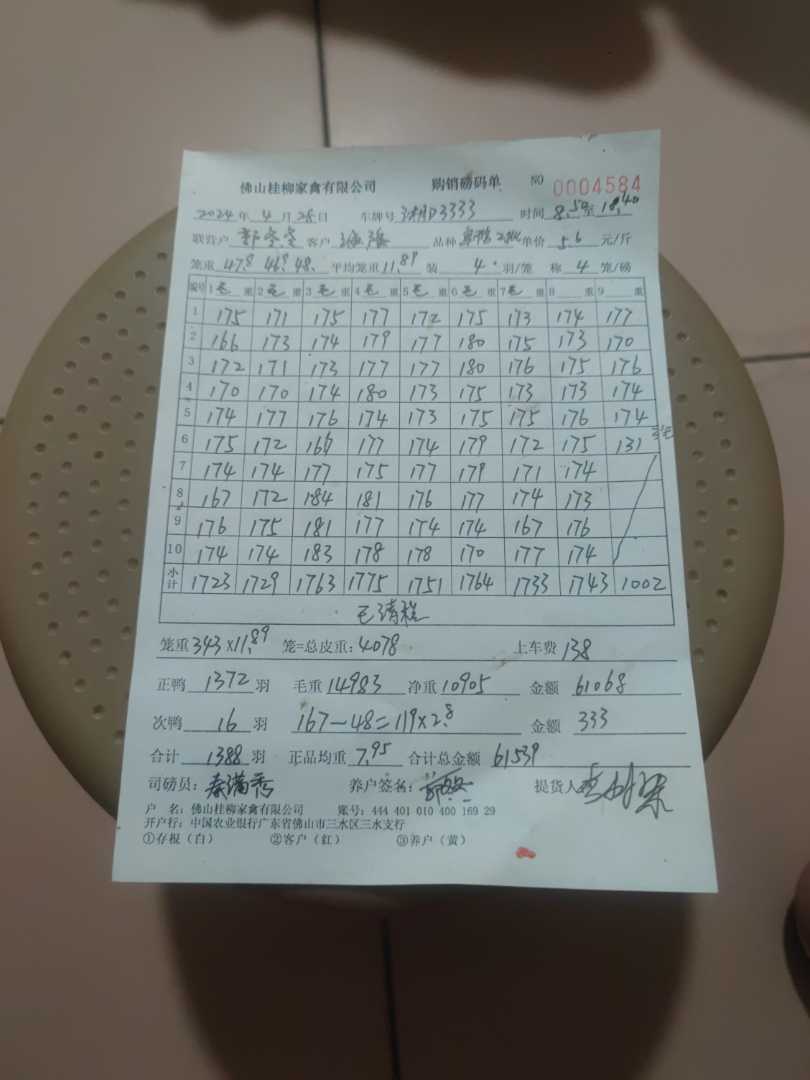 佛山桂柳家禽有限公司 购销磅码单 NO 0004584
2024年 4月 28日 车牌号 3333 时间 8:50至 18:40
联营户 客户 品种 单价 5.6 元/斤
笼重 47.8 46.9 48. 平均笼重 11.89 装 4 羽/笼 称 4 笼/磅
编号 1毛重 2毛重 3毛重 4毛重 5毛重 6毛重 7毛重 8 重 9 重
1 175 171 175 177 172 175 173 174 177
2 166 173 174 179 177 180 175 173 170
3 172 171 173 177 177 180 176 175 176
4 170 170 174 180 173 175 173 173 174
5 174 177 176 174 173 175 175 176 174
6 175 172 166 177 174 179 172 175 131 3毛
7 174 174 177 175 177 179 171 174
8 167 172 184 181 176 177 174 173
9 176 175 181 177 174 174 167 176
10 174 174 183 178 178 170 177 174
小计 1723 1729 1763 1775 1751 1764 1733 1743 1002
已清糕
笼重 343×11.89 笼=总皮重: 4078 上车费 138
正鸭 1372 羽 毛重 14983 净重 10905 金额 61068
次鸭 16 羽 167-48=119×2.8 金额 333
合计 1388 羽 正品均重 7.95 合计总金额 61539
司磅员: 秦满秀 养户签名: 提货人
户 名: 佛山桂柳家禽有限公司 账号: 444 401 010 400 169 29
开户行: 中国农业银行广东省佛山市三水区三水支行
①存根（白） ②客户（红） ③养户（黄）